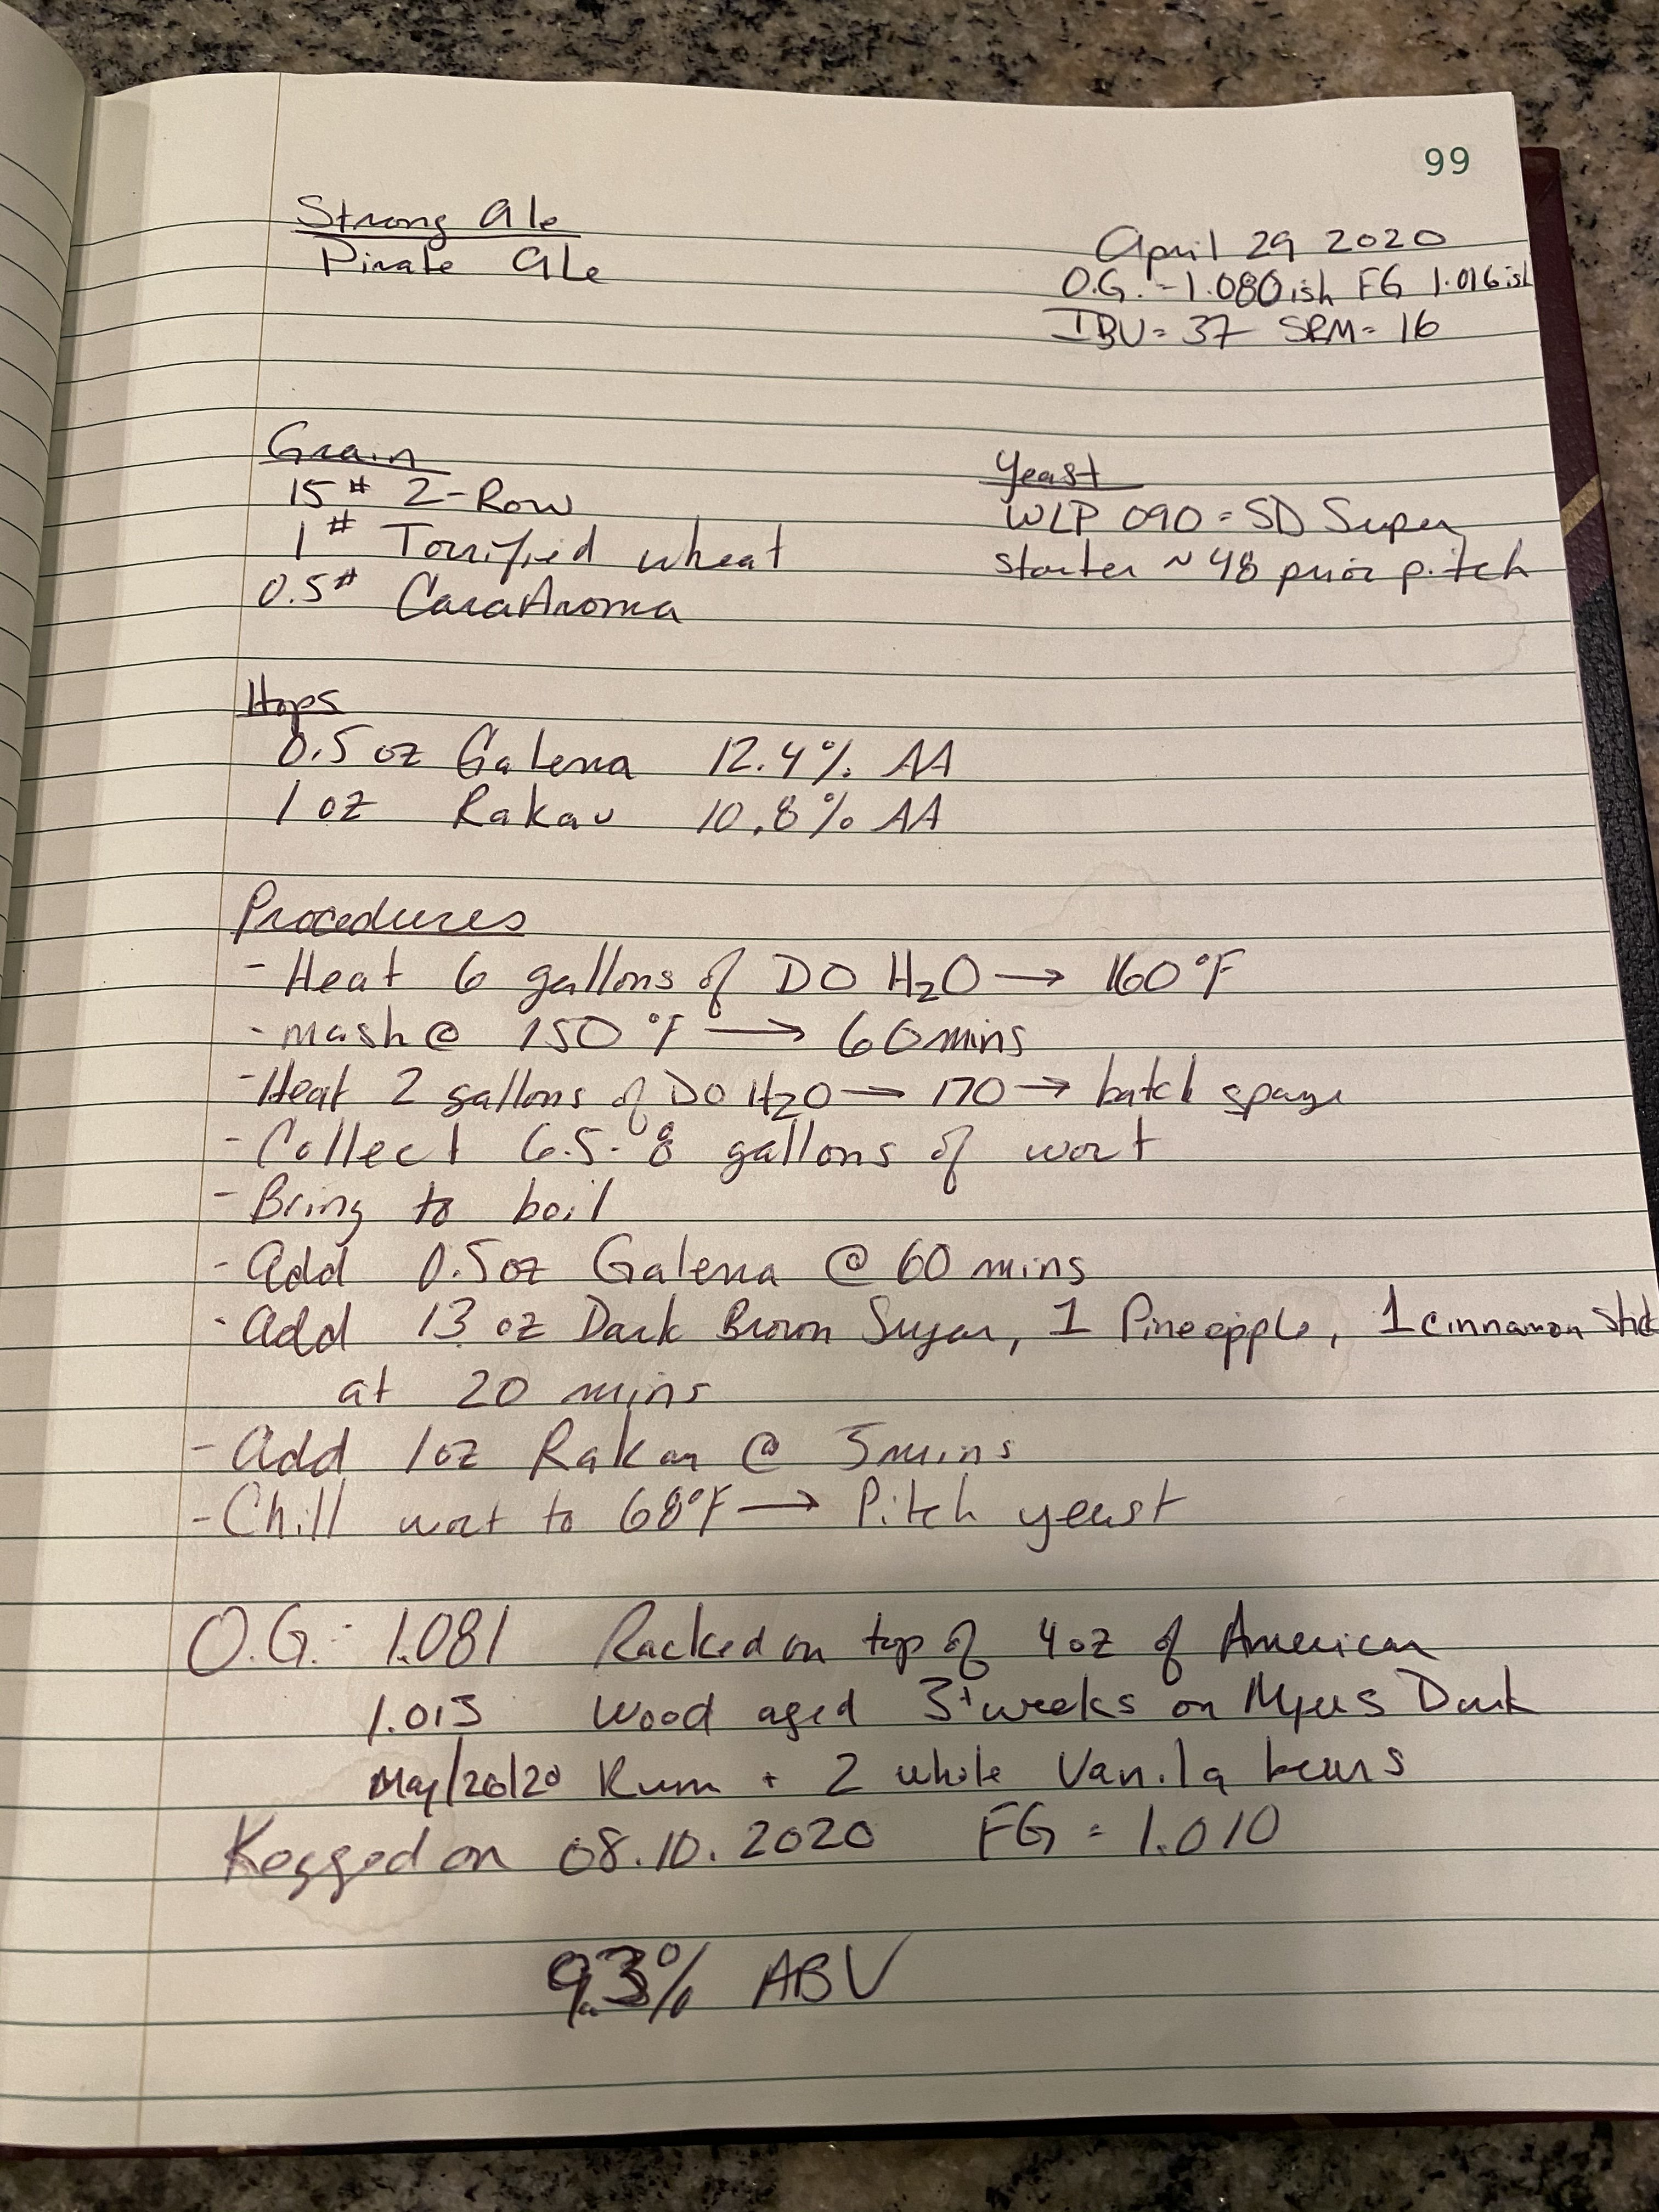 99
Strong Ale
Pirate Ale
April 29 2020
O.G. - 1.080ish FG 1.016ish
IBU = 37 SRM = 16
Grain
15# 2-Row
1# Torrified wheat
0.5# CaraAroma
Yeast
WLP 090 = SD Super
starter ~ 48 prior pitch
Hops
0.5 oz Galena 12.4% AA
1 oz Rakau 10.8% AA
Procedures
- Heat 6 gallons of DO H2O → 160°F
- mash @ 150°F → 60 mins
- Heat 2 gallons of DO H2O → 170 → batch sparge
- Collect 6.5-8 gallons of wort
- Bring to boil
- Add 0.5oz Galena @ 60 mins
- Add 13 oz Dark Brown Sugar, 1 Pineapple, 1 cinnamon stick
at 20 mins
- Add 1oz Rakau @ 5 mins
- Chill wort to 68°F → Pitch yeast
O.G. - 1.081 Racked on top of 4oz of American
1.015 Wood aged 3+ weeks on Myers Dark
May/20/20 Rum + 2 whole Vanila beans
Kegged on 08.10.2020 FG = 1.010
9.3% ABV